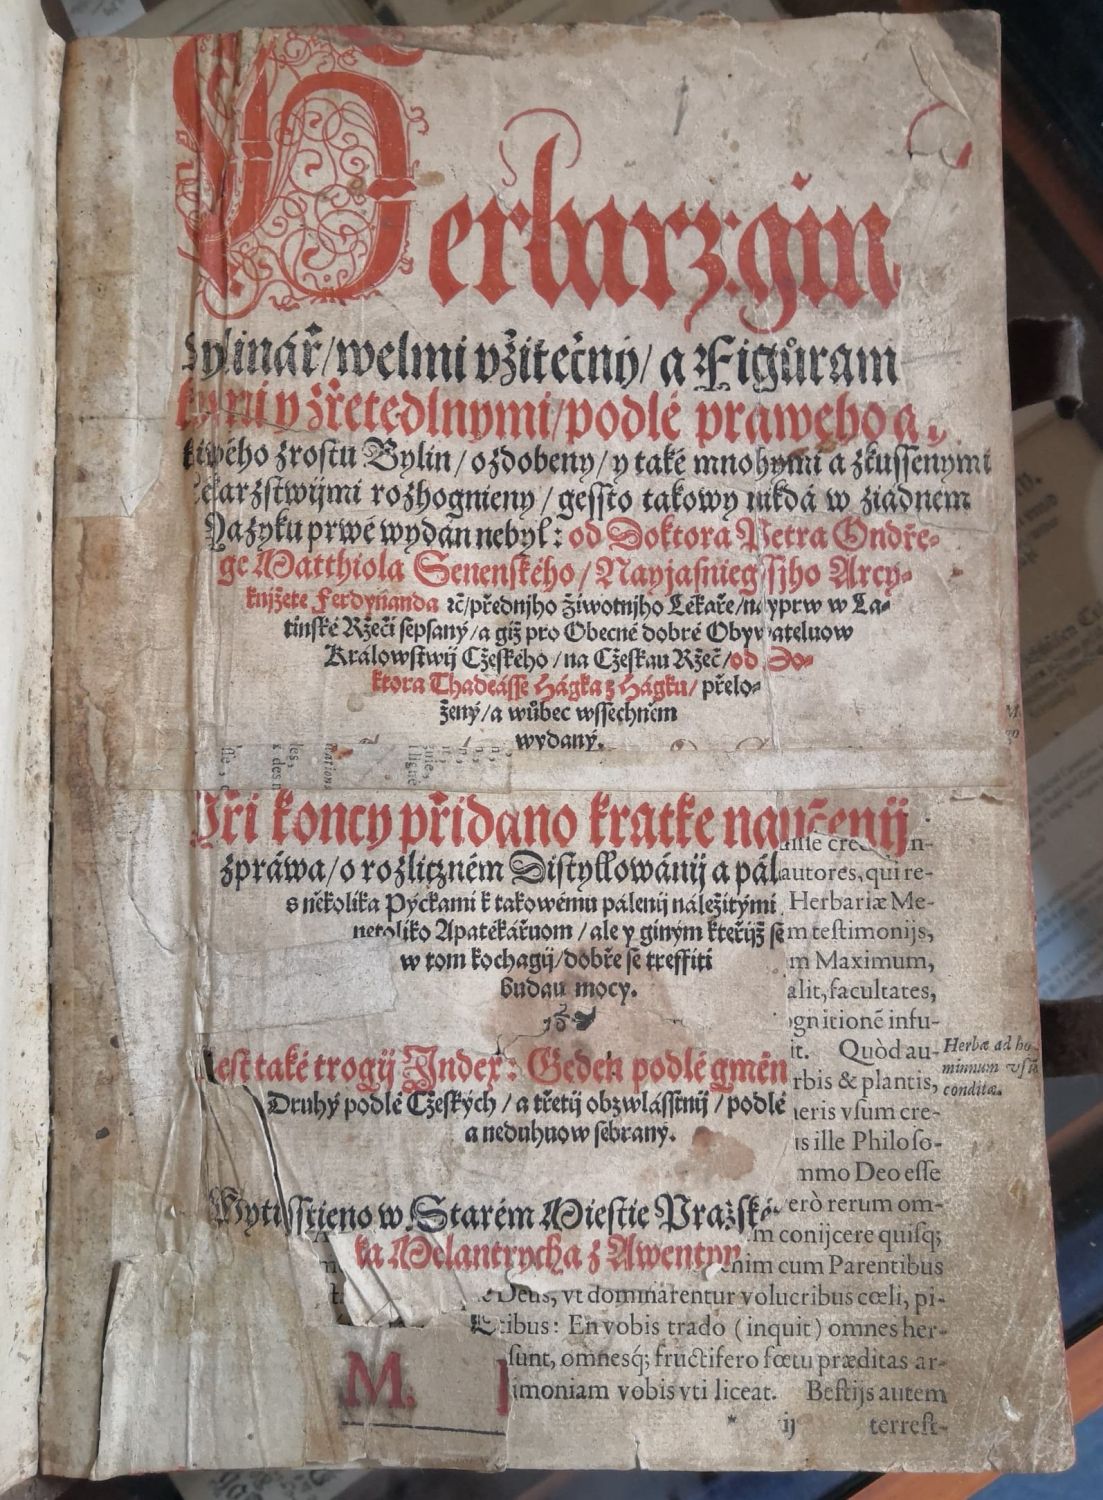 Herbarz: ginak
Bylinář / welmi vžitečný / a Figůram
kymi y zřetedlnymi / podlé praweho a
kiwého zrostu Bylin / ozdobeny / y také mnohymi a zkussenymi
Lékařzstwijmi rozhognieny / gessto takowy nikdá w ziádnem
Yazyku prwé wydán nebyl: od Doktora Petra Ondře-
ge Matthiola Senenského / Nayjasniegssjho Arcy-
knjžete Ferdynanda ꝛč / přednjho žiwotnjho Lékaře / nayprw w La-
tinské Ržeči sepsaný / a giž pro Obecné dobré Obywateluow
Králowstwij Cžeského / na Cžeskau Ržeč / od Do-
ktora Thadeásse Hágka z Hágku / přelo-
žený / a wůbec wssechněm
wydaný.
Při koncy přidano kratke naučenij
zpráwa / o rozliczném Distyllowánij a pál
s několika Pýckami k takowému pálenij náležitými
netoliko Apatékářuom / ale y giným kteřijž se
w tom kochagij / dobře se treffiti
budau mocy.
Gest také trogij Index: Geden podlé gmén
Druhý podlé Cžeských / a třetij obzwlásstnij / podlé
a neduhuow sebraný.
Wytisstieno w Starém Miestie Pražské
ka Melantrycha z Awentyn
M.
autores, qui re-
Herbariæ Me-
m testimonijs,
m Maximum,
alit, facultates,
ognitionē infu-
it. Quòd au-
rbis & plantis,
neris vsum cre-
is ille Philoso-
mmo Deo esse
verò rerum om-
m conijcere quisq;
enim cum Parentibus
e Deus, vt dominarentur volucribus cœli, pi-
tibus: En vobis trado (inquit) omnes her-
sunt, omnesq; fructifero fœtu præditas ar-
imoniam vobis vti liceat. Bestijs autem
* ij terrest-
Herbæ ad ho-
minum vsū
conditæ.